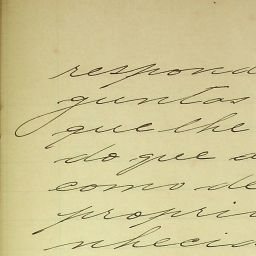 respond
guntas
que lhe
do que a
como de
propri
nhecid